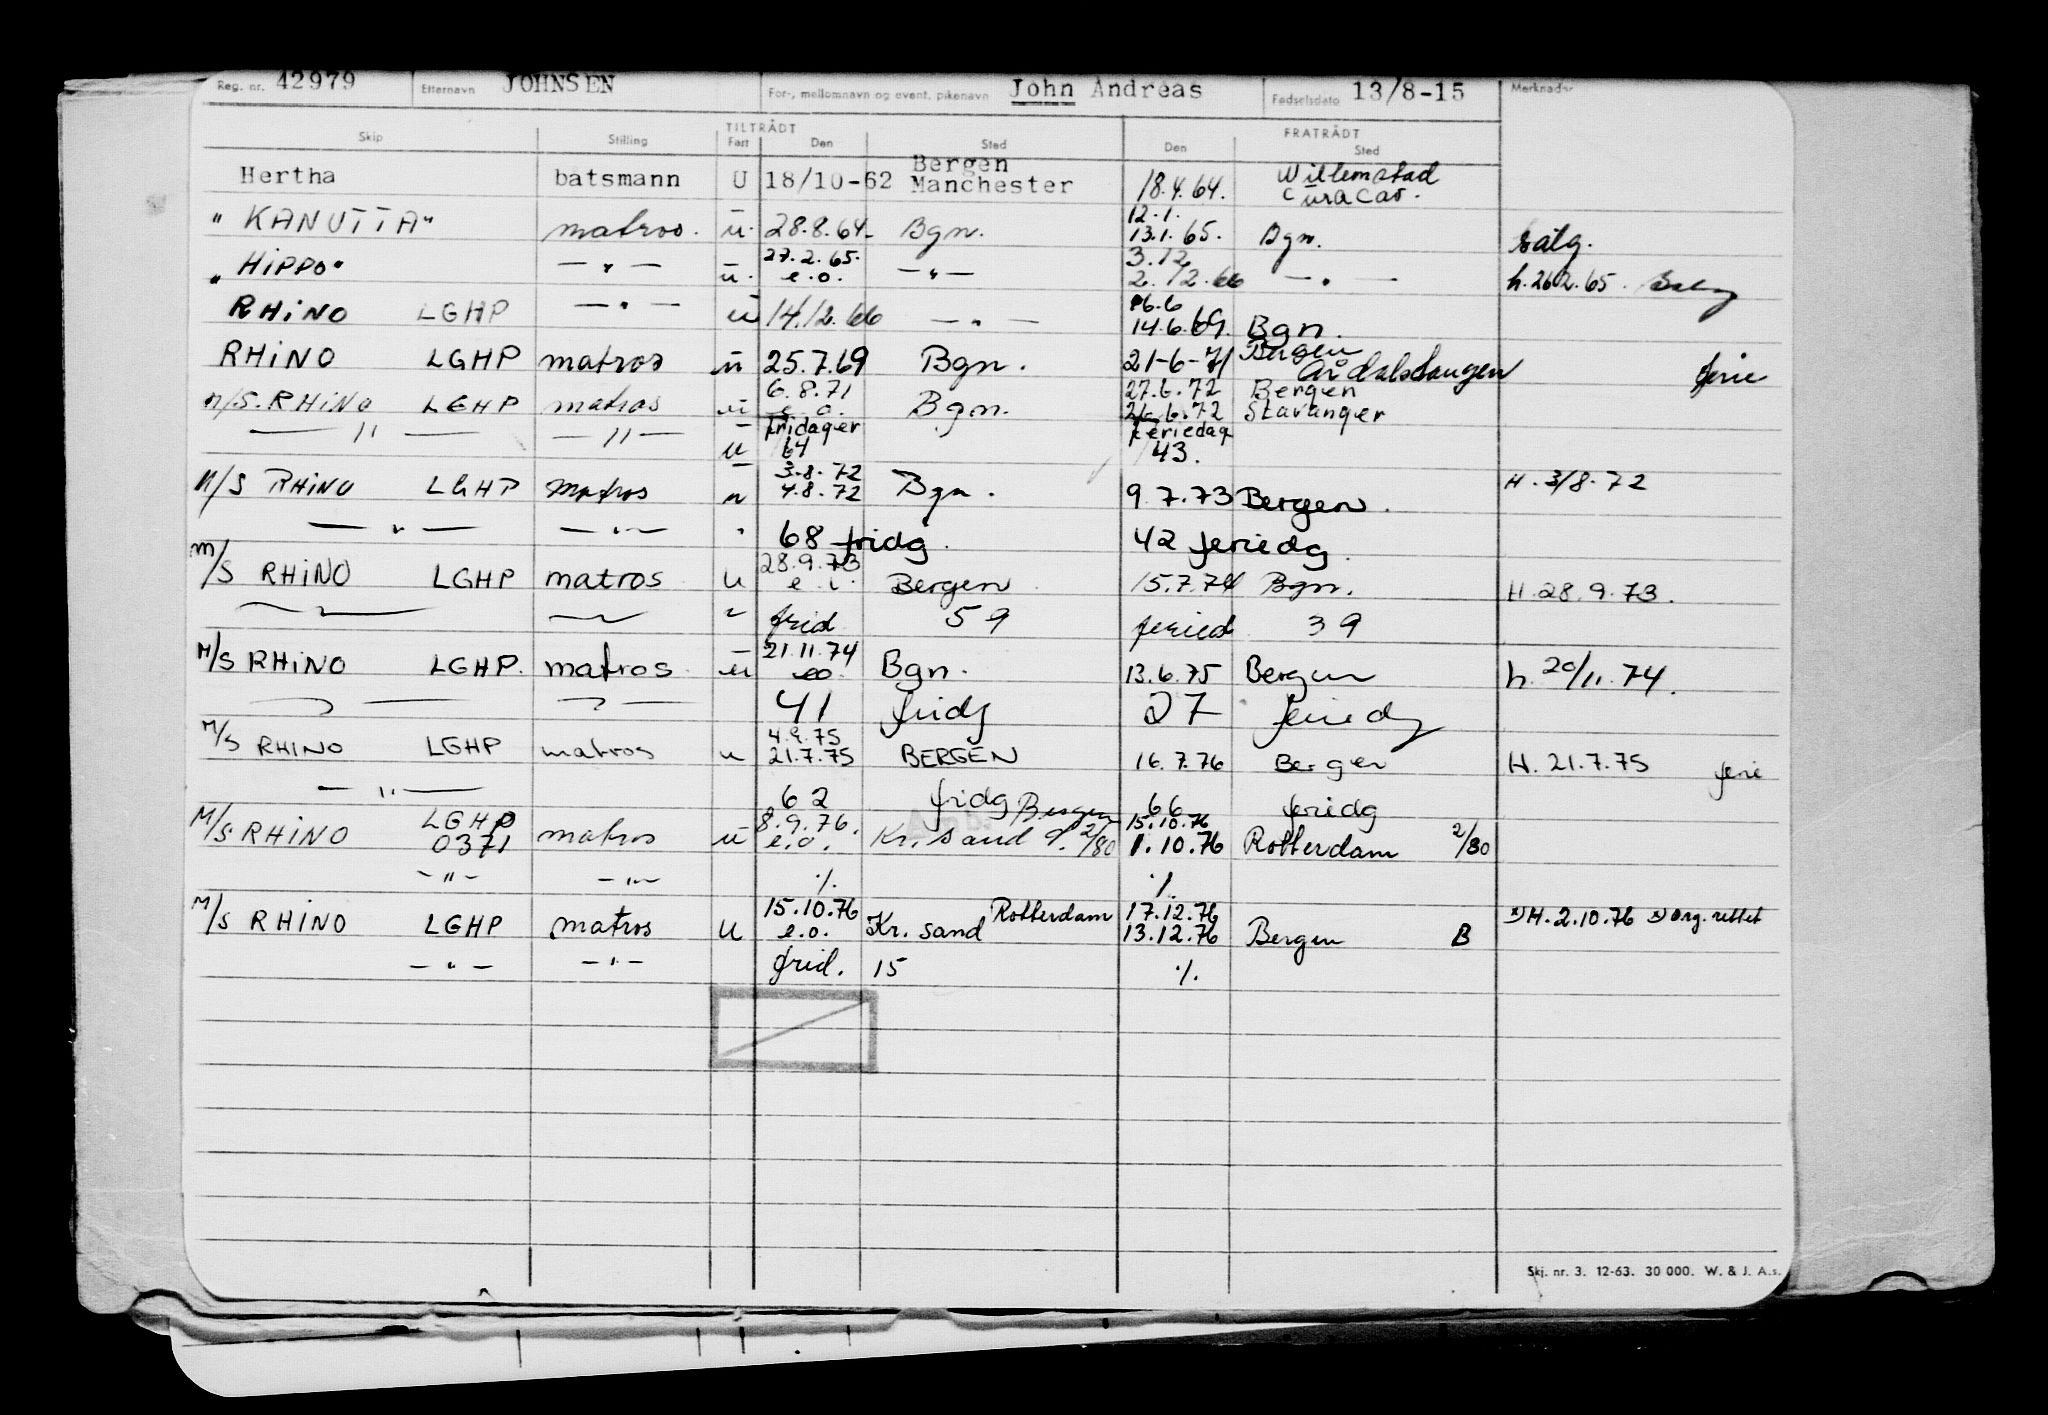 Reg. nr. 42979 Etternavn JOHNSEN For-, mellomnavn og event. pikenavn John Andreas Fødselsdato 13/8-15 Merknader
TILTRÅDT FRATRÅDT
Skip Stilling Fart Den Sted Den Sted
Bergen Willemstad
Hertha batsmann U 18/10-62 Manchester 18.4.64. Curacao.
12.1.
"KANUTTA" matros. u. 28.8.64. Bgn. 13.1.65. Bgn. salg.
27.2.65. 3.12
"HIPPO" — " — u. e.o. — " — 2.12.66 — " — h. 26.2.65. Salg
16.6
RHINO LGHP — " — u 14.12.66 — " — 14.6.69. Bgn.
Bergen
RHINO LGHP matros u 25.7.69 Bgn. 21-6-71 Årdalstangen ferie
6.8.71 27.6.72 Bergen
M/S. RHINO LGHP matros u e.o. Bgn. 26.6.72 Stavanger
Fridager Feriedag
— " — — " — u 64 43.
3-8-72
M/S RHINO LGHP matros u 4.8.72 Bgn. 9.7.73 Bergen. H. 3/8-72
— " — — " — " 68 fridg. 42 feriedg.
28.9.73
M/S RHINO LGHP matros u e.o. Bergen 15.7.74 Bgn. H. 28.9.73.
frid 59 feried 39
21.11.74
M/S RHINO LGHP. matros u eo. Bgn. 13.6.75 Bergen h. 20/11.74.
41 fridg 27 feriedg
4.9.75
M/S RHINO LGHP matros u 21.7.75 BERGEN 16.7.76 Bergen H. 21.7.75 ferie
— " — 62 fridg 66 feriedg
LGHP 8.9.76. Bergen 15.10.76
M/S RHINO 0371 matros u e.o. Kr. sand S. 2/80 1.10.76 Rotterdam 2/80
— " — — " — ./. ./.
15.10.76 Rotterdam 17.12.76
M/S RHINO LGHP matros U e.o. Kr. sand 13.12.76 Bergen B x) H. 2.10.76 x) org. rettet
— " — — " — frid. 15 ./.
Skj. nr. 3. 12-63. 30 000. W. & J. A.s.